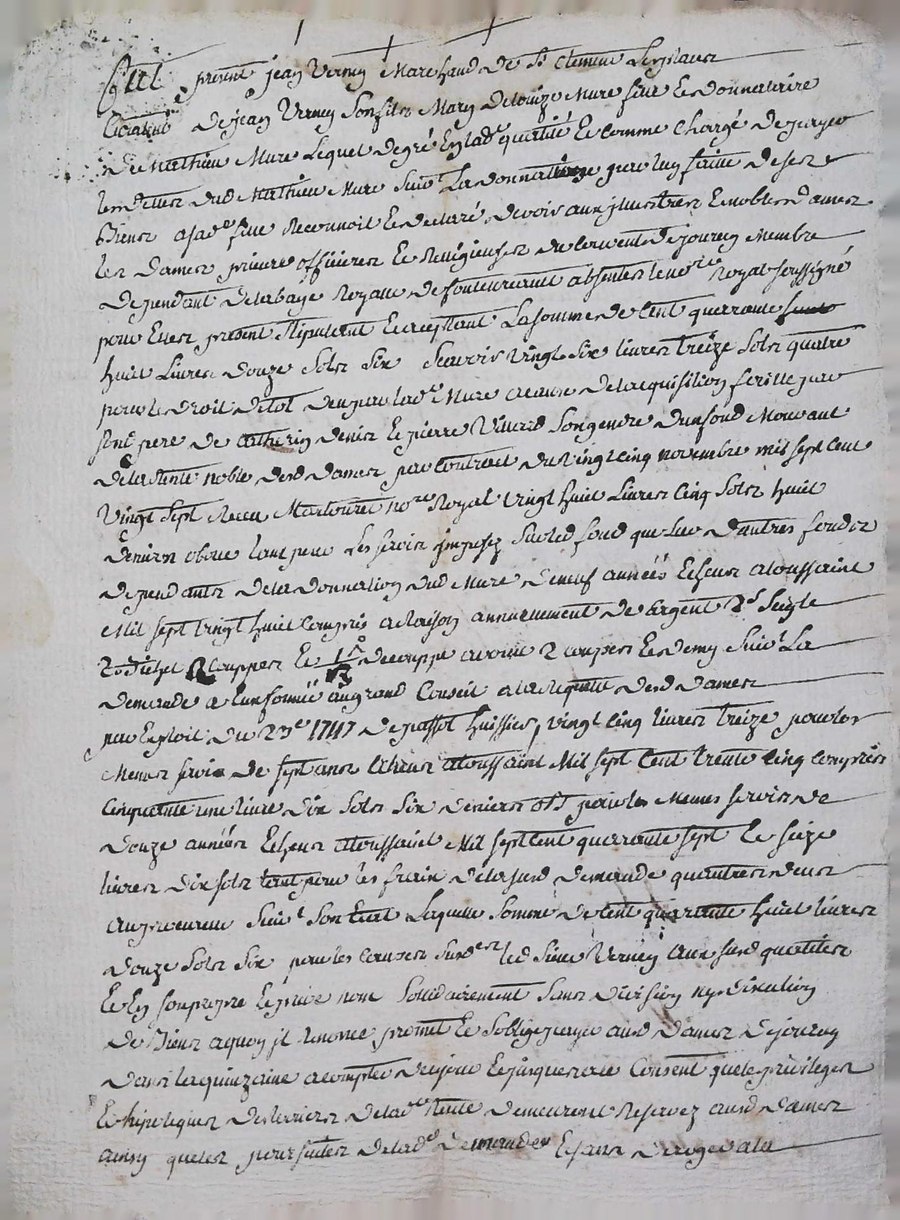 fut present jean Verney Marchand de St Clement Les places
de jean Verney son fils Mary de Louize Mure fille et donnataire
de Mathieu Mure Lequel de gré En lad. qualité Et comme Chargé de payer
les dettes dud Mathieu Mure suivt La donnation par luy faitte de ses
Biens a sad. fille Reconnoit Et declaré devoir aux jllustres Et nobles dames
les dames prieure officieres Et Religieuses du Couvent de jourcey Membre
dependant de labaye Royalle de fontevreaut absentes le nore Royal soussigné
pour Elles present stipulant Et acceptant La somme de Cent quarante
huit Livres douze sols six scavoir vingt six livres treize sols quatre
pour le droit de lot deu par lad. Mure a cause de lacquisition faitte par
son pere de Catherin denis Et pierre Villard son gendre dun fond Mouvant
de la Rente noble desd dames par Contract du vingt cinq novembre mil sept cent
vingt sept Receu Martouret nore Royal vingt huit Livres cinq sols huit
deniers obole tant pour les servis jmposez sur led fond que sur dautres fondz
dependants de la donnation dud Mure de neuf années Echeues a toussaint
Mil sept vingt huit Compris a Raison annuellement de argent 2s seigle
2 couppes Et de couppe avoine 2 coupes Et demy suivt La
demande a Eux formée au grand Conseil a la Requette desd dames
par Exploit du 1747 de passot huissier, vingt cinq livres treize pour les
Memes servis de sept ans Echeus a toussaint Mil sept Cent trente cinq compris
Cinquante une livre dix sols six deniers pour les Memes servis de
douze années Echeues a toussaint Mil sept cent quarante sept Et seize
livres dix sols tant pour les frais de la susd demande quautres deus
au procureur suivt son Etat Laquelle somme de Cent quarante huit livres
douze sols six pour les Causes susd. led sieur Verney aux susd qualités
Et En son propre Et privé nom sollidairement sans division ny discution
de Biens a quoy jl Renonce, promet Et soblige payer ausd dames de jourcey
dans la quinzaine a compter de ce jour Et jusques a ce Consent que les privileges
Et hipoteques des terriers de lad. Rente demeurent Reservez ausd dames
ainsy que les poursuites de lad. demande Et sans deroger a la